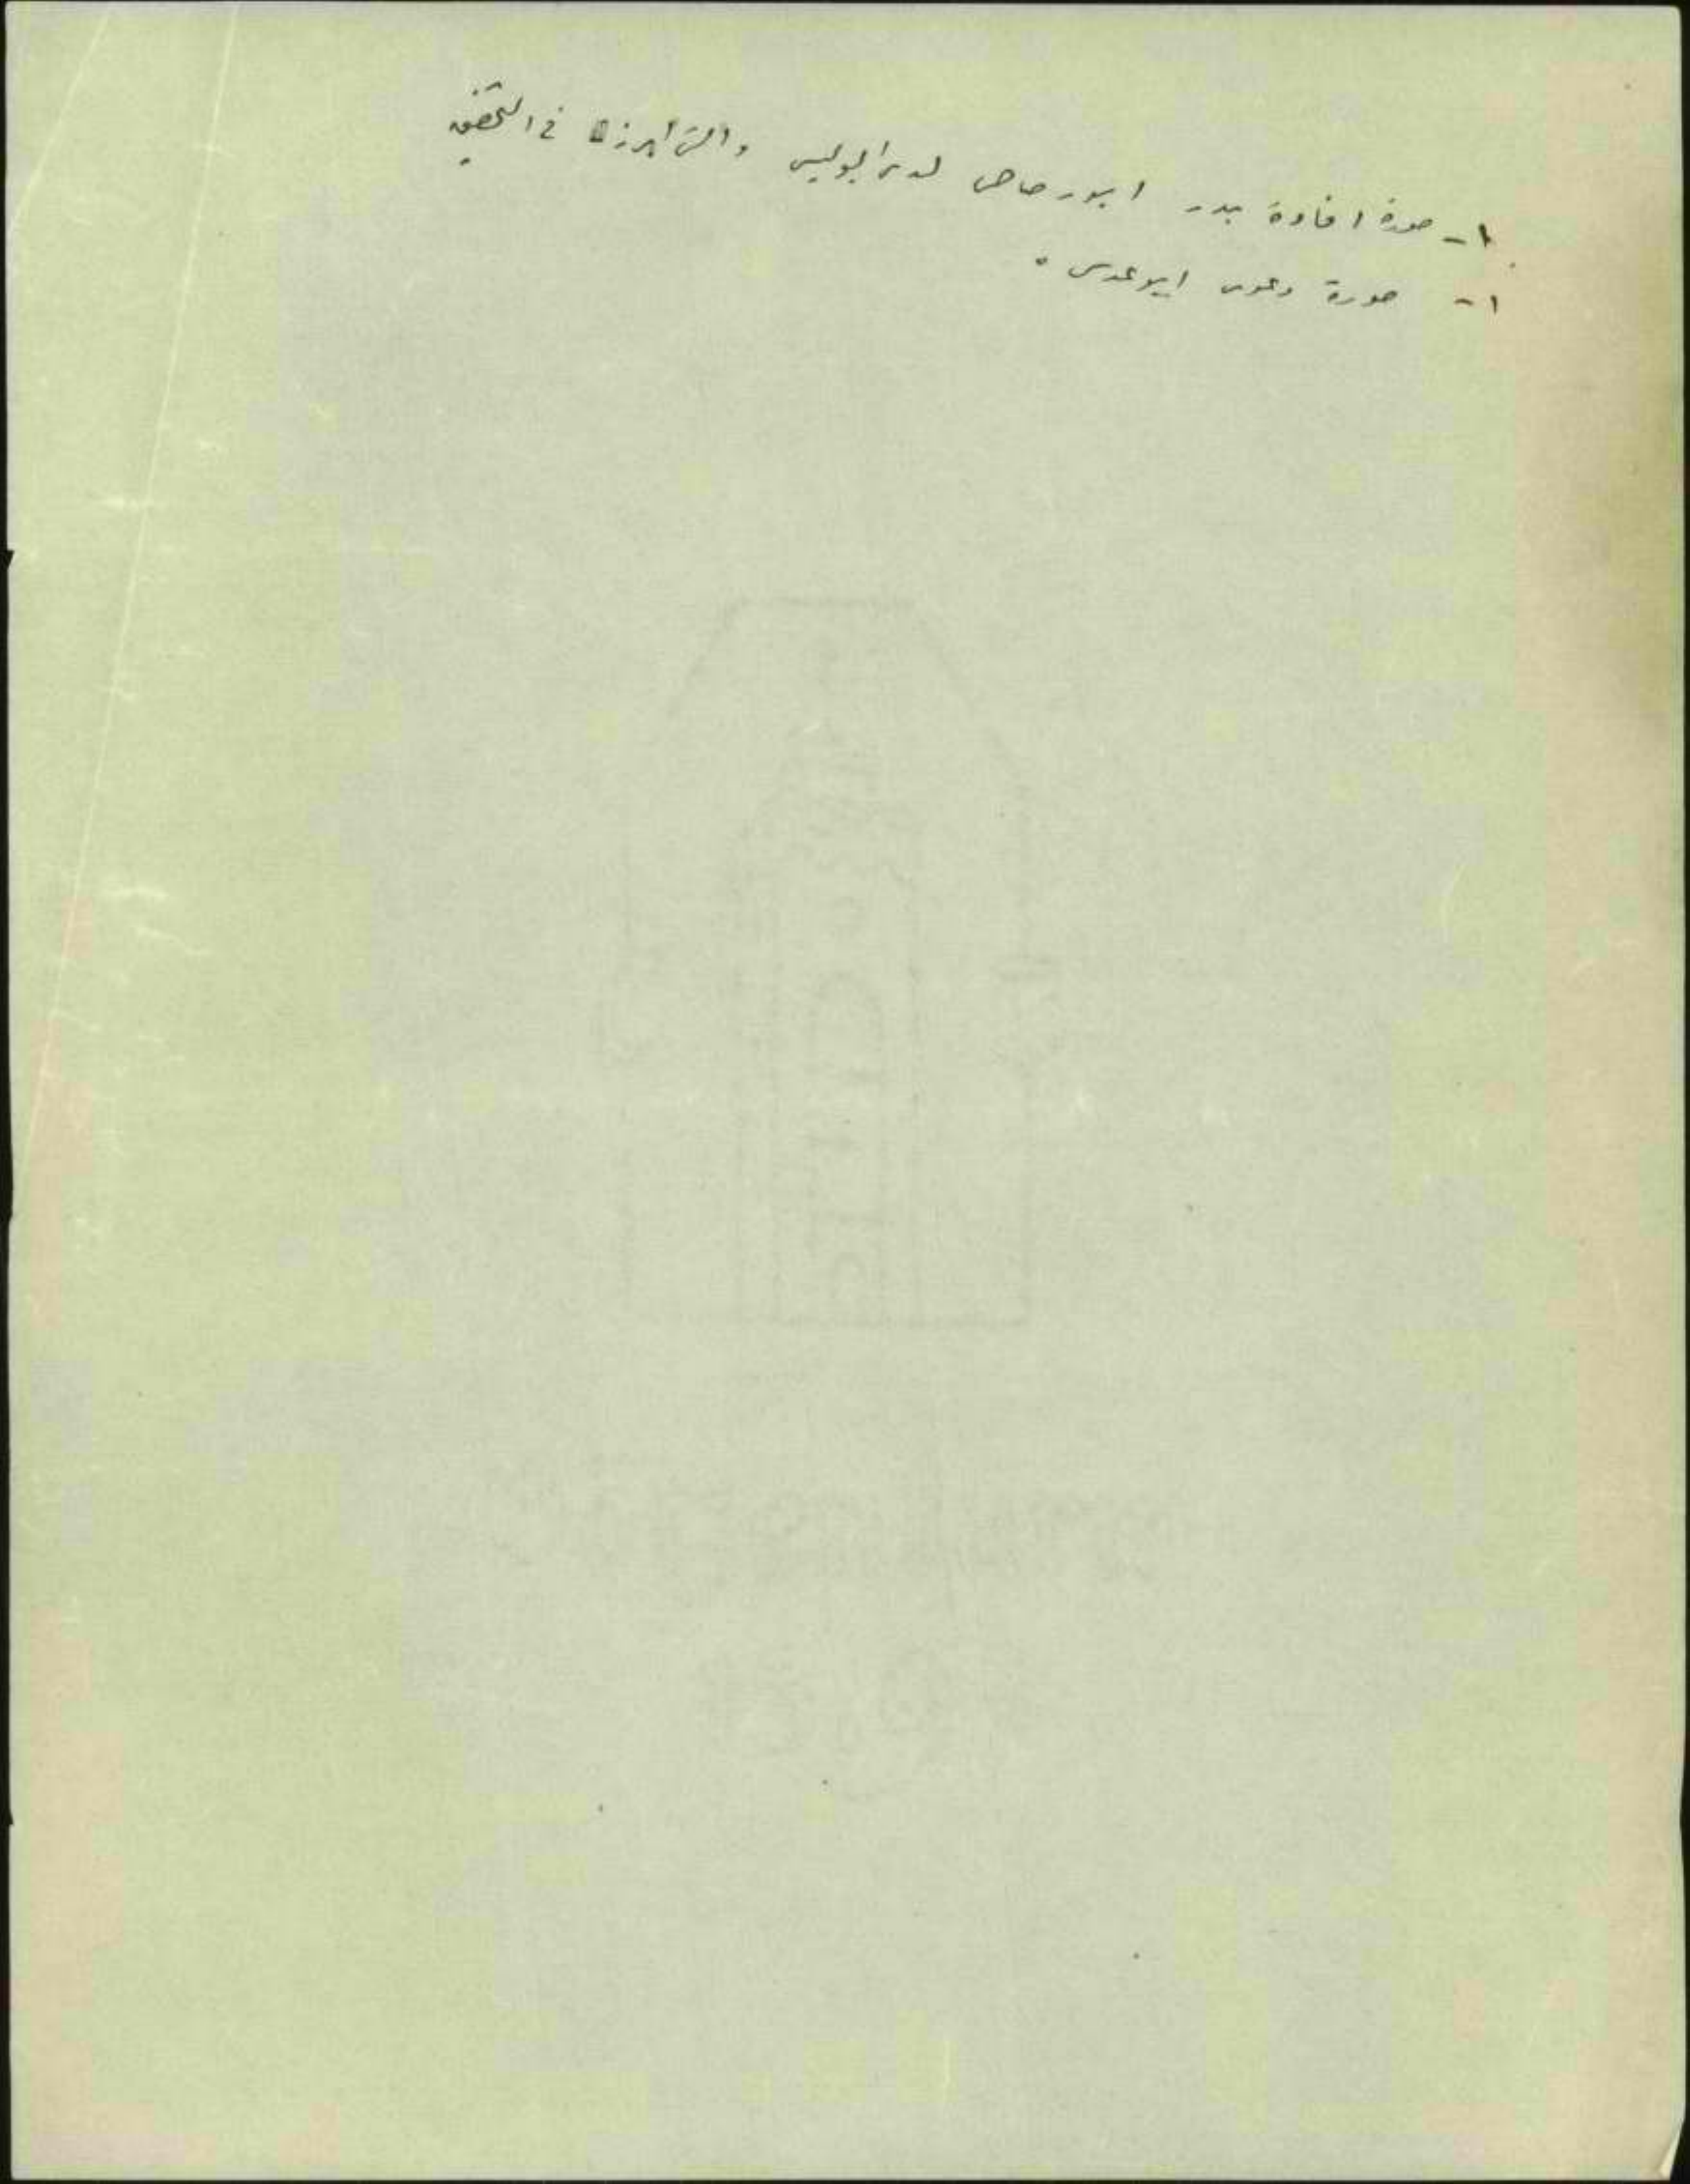 ١- صورة افادة بدر ابو رصاص لدى البوليس والتي ابرزت في التحقيق
١- صورة دعوى ابو عدس .